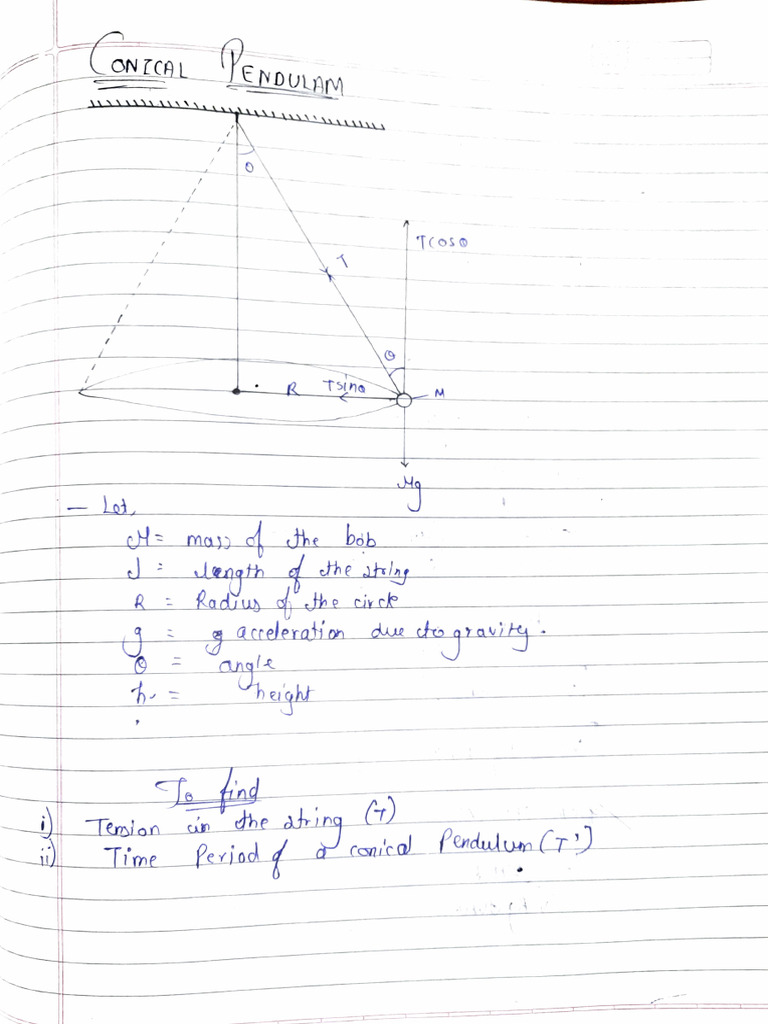 CONICAL PENDULAM
θ
T
Tcosθ
θ
R Tsinθ M
Mg
— Let,
M = mass of the bob
l = length of the string
R = Radius of the circle
g = g acceleration due to gravity.
θ = angle
h = height
To find
i) Tension in the string (T)
ii) Time Period of a conical Pendulum (T')